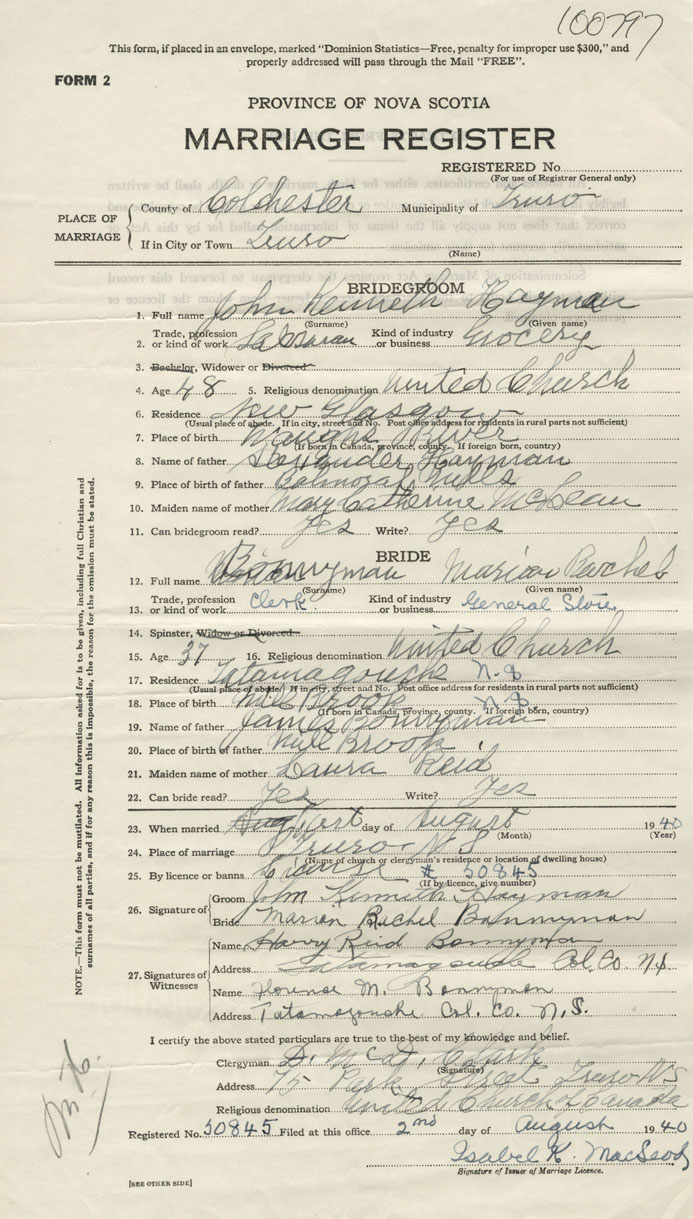 100797
This form, if placed in an envelope, marked "Dominion Statistics—Free, penalty for improper use $300," and
properly addressed will pass through the Mail "FREE".
FORM 2
PROVINCE OF NOVA SCOTIA
MARRIAGE REGISTER
REGISTERED No.
(For use of Registrar General only)
PLACE OF MARRIAGE
County of Colchester Municipality of Truro
If in City or Town Truro
(Name)
BRIDEGROOM
1. Full name John Kenneth Hayman
(Surname) (Given name)
2. Trade, profession or kind of work Kind of industry or business Grocery
3. Bachelor, Widower or Divorced
4. Age 48 5. Religious denomination United Church
6. Residence New Glasgow
(Usual place of abode. If in city, street and No. Post office address for residents in rural parts not sufficient)
7. Place of birth Waughs River
(If born in Canada, province, county. If foreign born, country)
8. Name of father Alexander Hayman
9. Place of birth of father Balmoral Mills
10. Maiden name of mother Mary Catherine McLean
11. Can bridegroom read? Yes Write? Yes
BRIDE
12. Full name Bonnyman Marion Rachel
(Surname) (Given name)
13. Trade, profession or kind of work Clerk. Kind of industry or business General Store
14. Spinster, Widow or Divorced
15. Age 37 16. Religious denomination United Church
17. Residence Tatamagouche N.S
(Usual place of abode. If in city, street and No. Post office address for residents in rural parts not sufficient)
18. Place of birth Mill Brook N.S
(If born in Canada, province, county. If foreign born, country)
19. Name of father James Bonnyman
20. Place of birth of father Mill Brook
21. Maiden name of mother Laura Reid
22. Can bride read? Yes Write? Yes
23. When married First day of August 1940
(Month) (Year)
24. Place of marriage Truro N S
(Name of church or clergyman's residence or location of dwelling house)
25. By licence or banns # 50845
(If by licence, give number)
26. Signature of
Groom John Kenneth Hayman
Bride Marion Rachel Bonnyman
27. Signatures of Witnesses
Name Harry Reid Bonnyman
Address Tatamagouche Col. Co. N.S.
Name Florence M. Bonnyman
Address Tatamagouche Col. Co. N.S.
I certify the above stated particulars are true to the best of my knowledge and belief.
Clergyman D. McD. Clark
(Signature)
Address 75 Park Street Truro N S
Religious denomination United Church of Canada
Registered No. 50845 Filed at this office 2nd day of August 1940
Isabel K. MacLeod
Signature of Issuer of Marriage Licence.
[SEE OTHER SIDE]
NOTE.—This form must not be mutilated. All information asked for is to be given, including full Christian and
surnames of all parties, and if for any reason this is impossible, the reason for the omission must be stated.